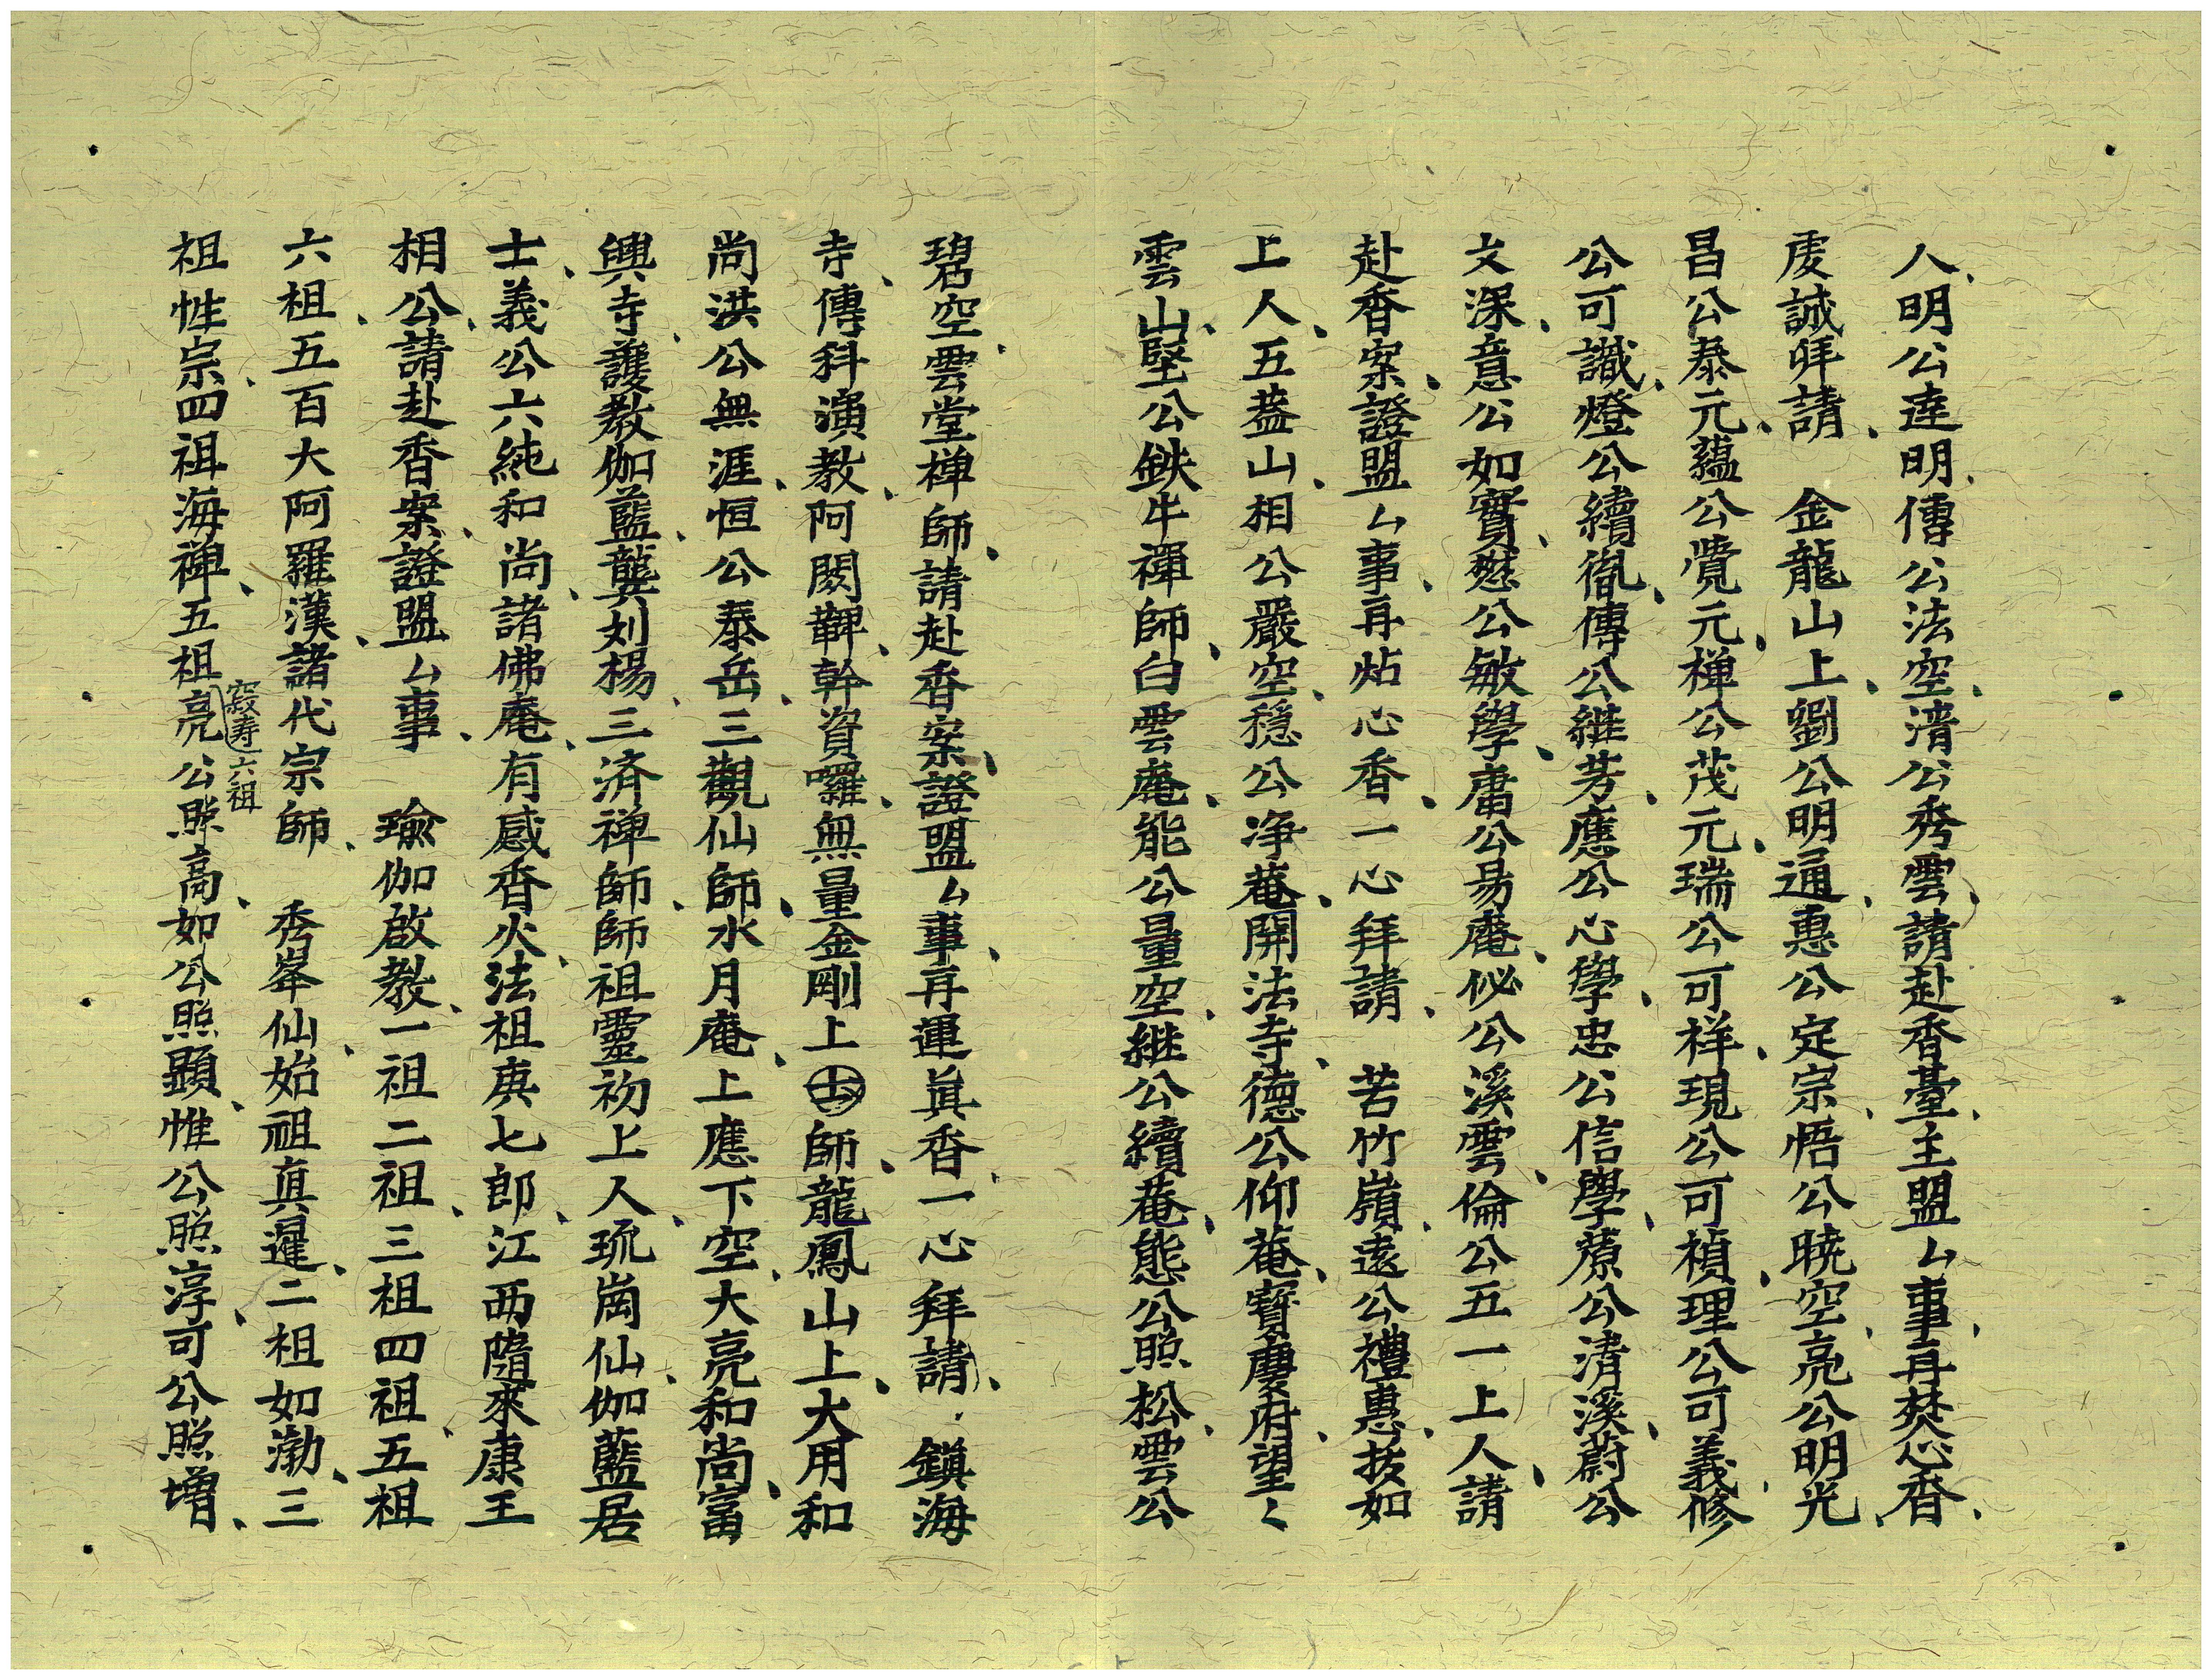 人、明公達明、傳公法空、清公秀雲、請赴香臺、主盟厶事、再焚心香、
虔誠拜請、　金龍山上、劉公明通、惠公定宗、悟公曉空、亮公明光、
昌公泰元、蘊公覺元、禅公茂元、瑞公可祥、現公可禎、理公可義、修
公可識、燈公續胤、傳公継芳、應公心學、忠公信學、藨公清溪、蔚公
文深、意公如實、憖公敏學、肅公易庵、佖公溪雲、倫公五一上人、請
赴香案、證盟厶事、再炷心香、一心拜請、　苦竹嶺、遠公禮惠、拔如
上人、五葢山、相公嚴空、穏公净菴、開法寺、德公仰菴、寳慶府、望〻
雲山、堅公鉄牛禪師、白雲庵、能公量空、継公續菴、態公照松、雲公
碧空、雲堂禅師、請赴香案、證盟厶事、再運眞香、一心拜請、　鎮海
寺、傳科演教、阿闍鞞、幹資囉、無量金剛上師、龍鳳山上、大用和
尚、洪公無涯、恒公泰岳、三觀仙師、水月庵、上應下空、大亮和尚、富
興寺、護教伽藍、龔刘楊、三済禅師、師祖靈初上人、琉崗仙、伽藍居
士、義公六純和尚、諸佛庵、有感香火、法祖庚七郎、江西隨來康王
相公、請赴香案、證盟厶事、　瑜伽啟教、一祖二祖、三祖四祖、五祖
六祖、五百大阿羅漢、諸代宗師、　秀峯仙、始祖真暹、二祖如渤、三
祖性宗、四祖海禅、五祖寂壽、六祖亮公照高、如公照顕、惟公照淳、可公照增、